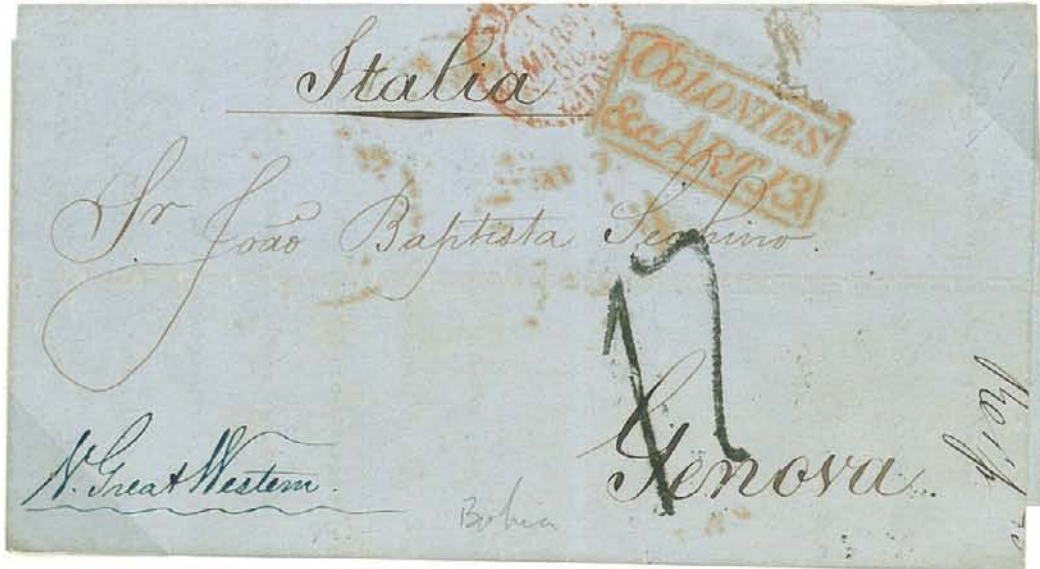 Italia
COLONIES
&c. ART. 13.
Sr João Baptista
17
Genova
V. Great Western
Bahia